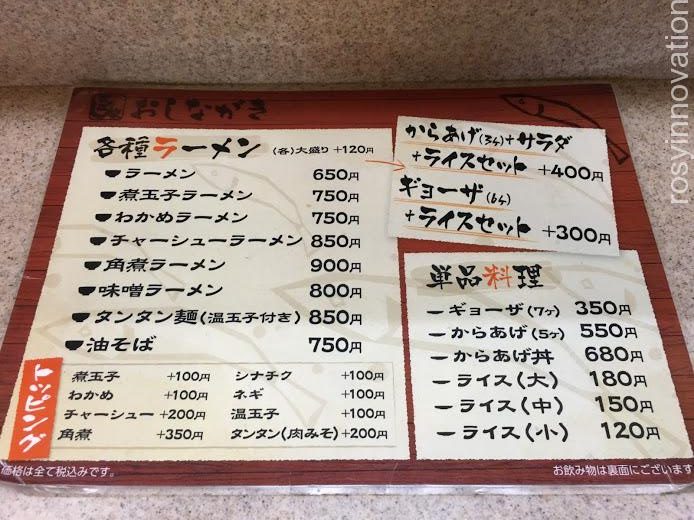 おしながき
各種ラーメン (各)大盛り +120円
ラーメン 650円
煮玉子ラーメン 750円
わかめラーメン 750円
チャーシューラーメン 850円
角煮ラーメン 900円
味噌ラーメン 800円
タンタン麺(温玉子付き) 850円
油そば 750円
トッピング
煮玉子 +100円 シナチク +100円
わかめ +100円 ネギ +100円
チャーシュー +200円 温玉子 +100円
角煮 +350円 タンタン(肉みそ) +200円
からあげ(3ヶ)+サラダ
+ライスセット +400円
ギョーザ(6ヶ)
+ライスセット +300円
単品料理
ギョーザ(7ヶ) 350円
からあげ(5ヶ) 550円
からあげ丼 680円
ライス(大) 180円
ライス(中) 150円
ライス(小) 120円
価格は全て税込みです。
お飲み物は裏面にございます
rosyinnovation